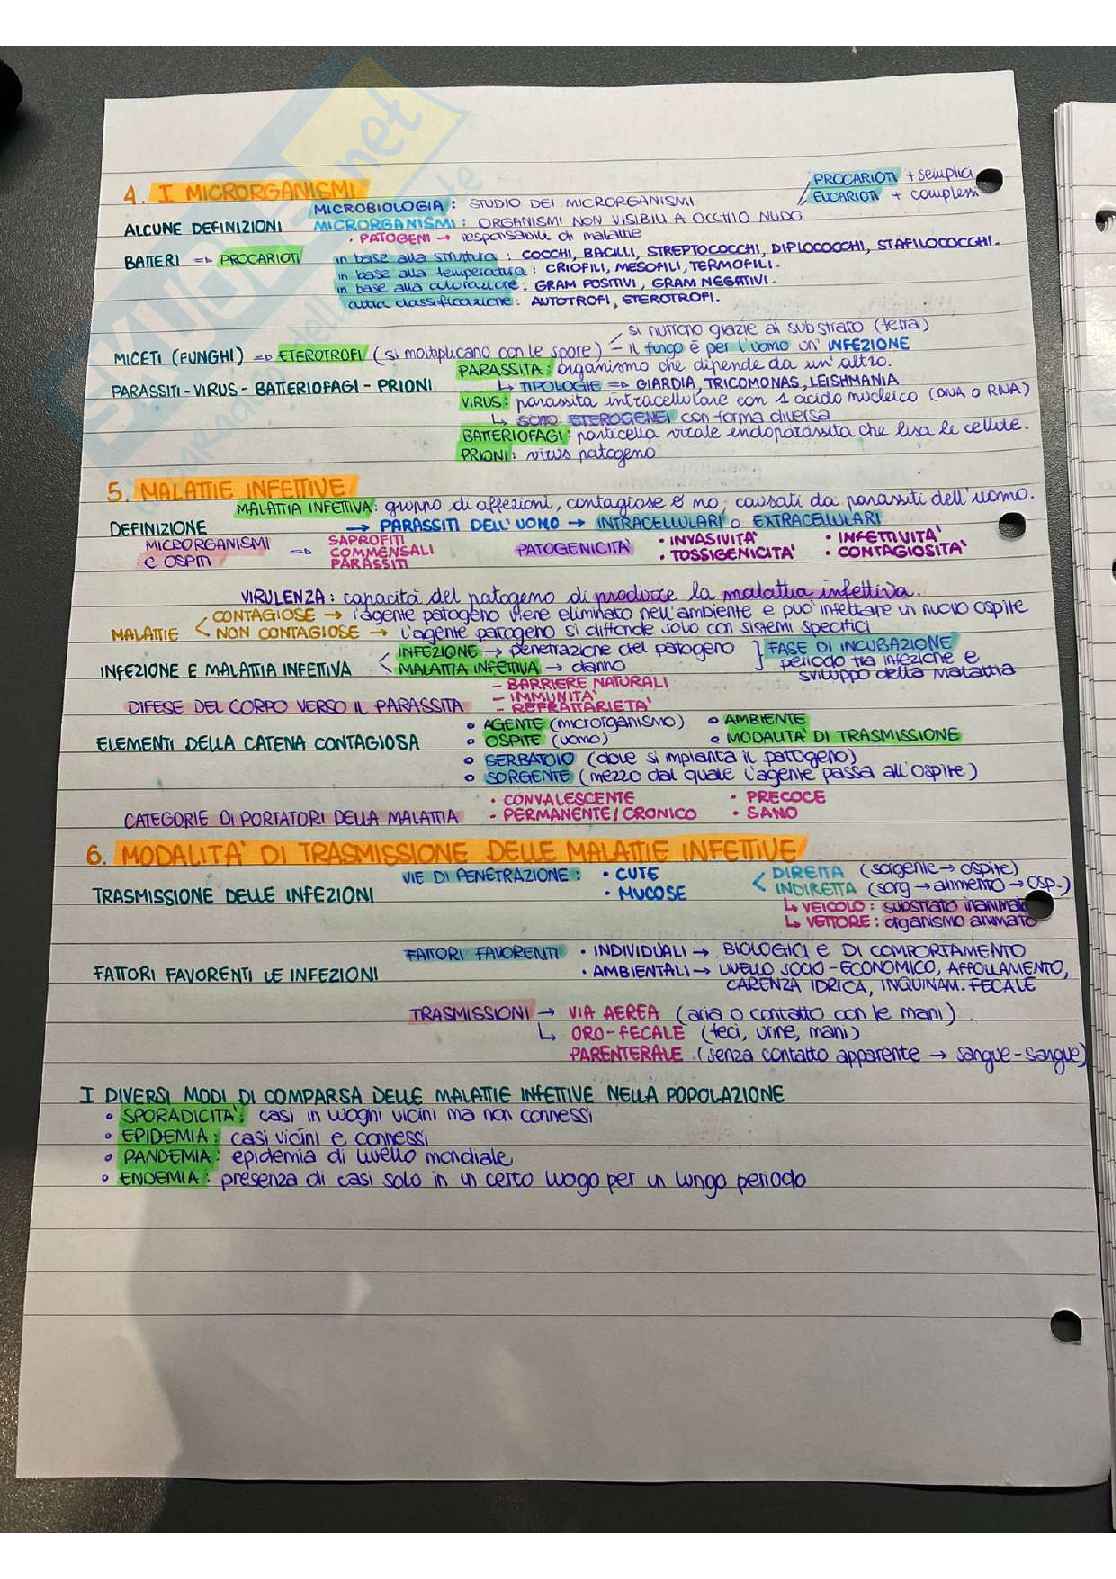 4. I MICRORGANISMI
PROCARIOTI + semplici
EUCARIOTI + complessi
MICROBIOLOGIA: STUDIO DEI MICRORGANISMI
ALCUNE DEFINIZIONI MICRORGANISMI: ORGANISMI NON VISIBILI A OCCHIO NUDO
• PATOGENI → responsabili di malattie
BATTERI => PROCARIOTI in base alla struttura: COCCHI, BACILLI, STREPTOCOCCHI, DIPLOCOCCHI, STAFILOCOCCHI.
in base alla temperatura: CRIOFILI, MESOFILI, TERMOFILI.
in base alla colorazione: GRAM POSITIVI, GRAM NEGATIVI.
altra classificazione: AUTOTROFI, ETEROTROFI.
si nutrono grazie al substrato (terra)
MICETI (FUNGHI) => ETEROTROFI (si moltiplicano con le spore) – il fungo è per l'uomo un'INFEZIONE
PARASSITI-VIRUS-BATTERIOFAGI-PRIONI PARASSITA: organismo che dipende da un'altro.
↳ TIPOLOGIE => GIARDIA, TRICOMONAS, LEISHMANIA
VIRUS: parassita intracellulare con 1 acido nucleico (DNA o RNA)
↳ SONO ETEROGENEI con forma diversa
BATTERIOFAGI: particella virale endoparassita che lisa le cellule.
PRIONI: virus patogeno
5. MALATTIE INFETTIVE
MALATTIA INFETTIVA: gruppo di affezioni, contagiose o no, causati da parassiti dell'uomo.
DEFINIZIONE → PARASSITI DELL'UOMO → INTRACELLULARI o EXTRACELLULARI
MICRORGANISMI E OSPITI => SAPROFITI COMMENSALI PARASSITI
PATOGENICITÀ • INVASIVITA' • INFETTIVITA'
• TOSSIGENICITA' • CONTAGIOSITA'
VIRULENZA: capacità del patogeno di produrre la malattia infettiva.
MALATTIE < CONTAGIOSE → l'agente patogeno viene eliminato nell'ambiente e può infettare un nuovo ospite
NON CONTAGIOSE → l'agente patogeno si diffonde solo con sistemi specifici
INFEZIONE E MALATTIA INFETTIVA < INFEZIONE → penetrazione del patogeno
MALATTIA INFETTIVA → danno
} FASE DI INCUBAZIONE
periodo tra infezione e
sviluppo della malattia
DIFESE DEL CORPO VERSO IL PARASSITA – BARRIERE NATURALI
– IMMUNITA'
– REFRATTARIETA'
ELEMENTI DELLA CATENA CONTAGIOSA • AGENTE (microrganismo) • AMBIENTE
• OSPITE (uomo) • MODALITA' DI TRASMISSIONE
• SERBATOIO (dove si impianta il patogeno)
• SORGENTE (mezzo dal quale l'agente passa all'ospite)
CATEGORIE DI PORTATORI DELLA MALATTIA • CONVALESCENTE • PRECOCE
• PERMANENTE/CRONICO • SANO
6. MODALITA' DI TRASMISSIONE DELLE MALATTIE INFETTIVE
TRASMISSIONE DELLE INFEZIONI VIE DI PENETRAZIONE: • CUTE < DIRETTA (sorgente → ospite)
• MUCOSE INDIRETTA (sorg → alimento → osp.)
↳ VEICOLO: substrato inanimato
↳ VETTORE: organismo animato
FATTORI FAVORENTI LE INFEZIONI FATTORI FAVORENTI • INDIVIDUALI → BIOLOGICI E DI COMPORTAMENTO
• AMBIENTALI → LIVELLO SOCIO-ECONOMICO, AFFOLLAMENTO,
CARENZA IDRICA, INQUINAM. FECALE
TRASMISSIONI → VIA AEREA (aria o contatto con le mani)
↳ ORO-FECALE (feci, urine, mani)
PARENTERALE (senza contatto apparente → sangue-sangue)
I DIVERSI MODI DI COMPARSA DELLE MALATTIE INFETTIVE NELLA POPOLAZIONE
• SPORADICITA': casi in luoghi vicini ma non connessi
• EPIDEMIA: casi vicini e connessi
• PANDEMIA: epidemia di livello mondiale
• ENDEMIA: presenza di casi solo in un certo luogo per un lungo periodo